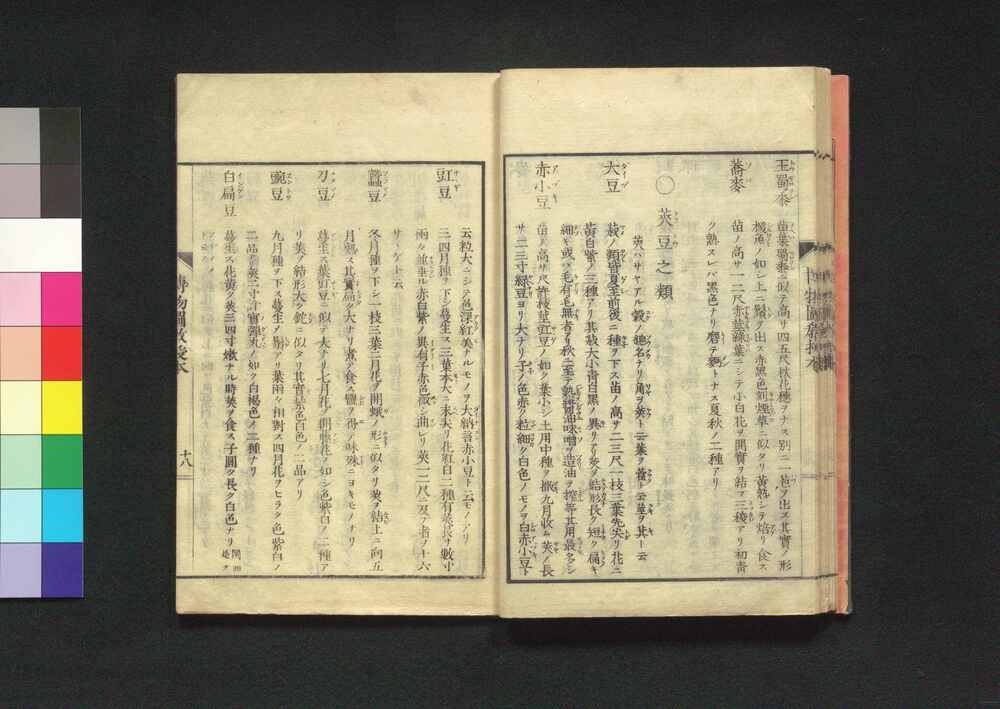 玉蜀黍
苗葉蜀黍ニ似テ高サ四五尺秋花穂ヲナス別ニ一苞ヲ出ス其實ノ形
椶魚ノ如シ上ニ鬚ヲ出ス赤黑色刻煙草ニ似タリ黃熟シテ焙リ食ス
蕎麥
苗ノ高サ一二尺赤莖緑葉ニシテ小白花ヲ開實ヲ結フ三稜アリ初青
ク熟スレバ黑色ナリ磨テ麪トナス夏秋ノ二種アリ
〇莢豆之類
莢ハサヤアル穀ノ總名ナリ角ヲ莢ト云葉ヲ藿ト云莖ヲ萁ト云
大豆
菽ノ類皆夏至前後ニ種ヲ下ス苗ノ高サ二三尺一枝三葉先尖リ花ニ
黃白紫ノ三種アリ其菽大小靑白黑ノ異リアリ莢ヲ結形長ク短ク扁キ
細キ或ハ毛有毛無者アリ秋ニ至テ熟醬油味噌ヲ造油ヲ搾等其用最多シ
赤小豆
苗ノ高サ尺許枝莖豇豆ノ如ク葉小シ土用中種ヲ撒九月收ム莢ノ長
サ二三寸緑豆ヨリ大ナリ子ノ色赤ク粒細ク白色ノモノヲ白赤小豆ト
云粒大ニシテ色深紅美ナルモノヲ大納言赤小豆ト云モノアリ
豇豆
三四月種ヲ下シ蔓生ス三葉本大ニ末尖リ花紅白二種有莢長サ數寸
兩々並垂ル赤白紫ノ異有子赤色微シ曲レリ莢一二尺ニ及フ者ノ十六
サヽゲト云
蠶豆
冬月種ヲ下シ一枝三葉二月花ヲ開蛾ノ形ニ似タリ莢ヲ結上ニ向五
月熟ス其實扁ク大ナリ煮テ食ス鹽ヲ得テ味殊ニヨキモノナリ
刀豆
蔓生ス葉豇豆ニ似テ大ナリ七月花ヲ開豇花ノ如シ色紫白ノ二種ア
リ莢ヲ結形大ク鉈ニ似タリ其實緋色白色ノ二品アリ
豌豆
九月種ヲ下ス蔓生ス鬚アリ葉兩々相對ス四月花ヲヒラク色紫白ノ
二品莢二寸許實彈丸ノ如ク白褐色ノ二種ナリ
白扁豆
蔓生ス花黃ク莢三四寸嫩ナル時莢ヲ食ス子圓ク長ク白色ナリ
十八